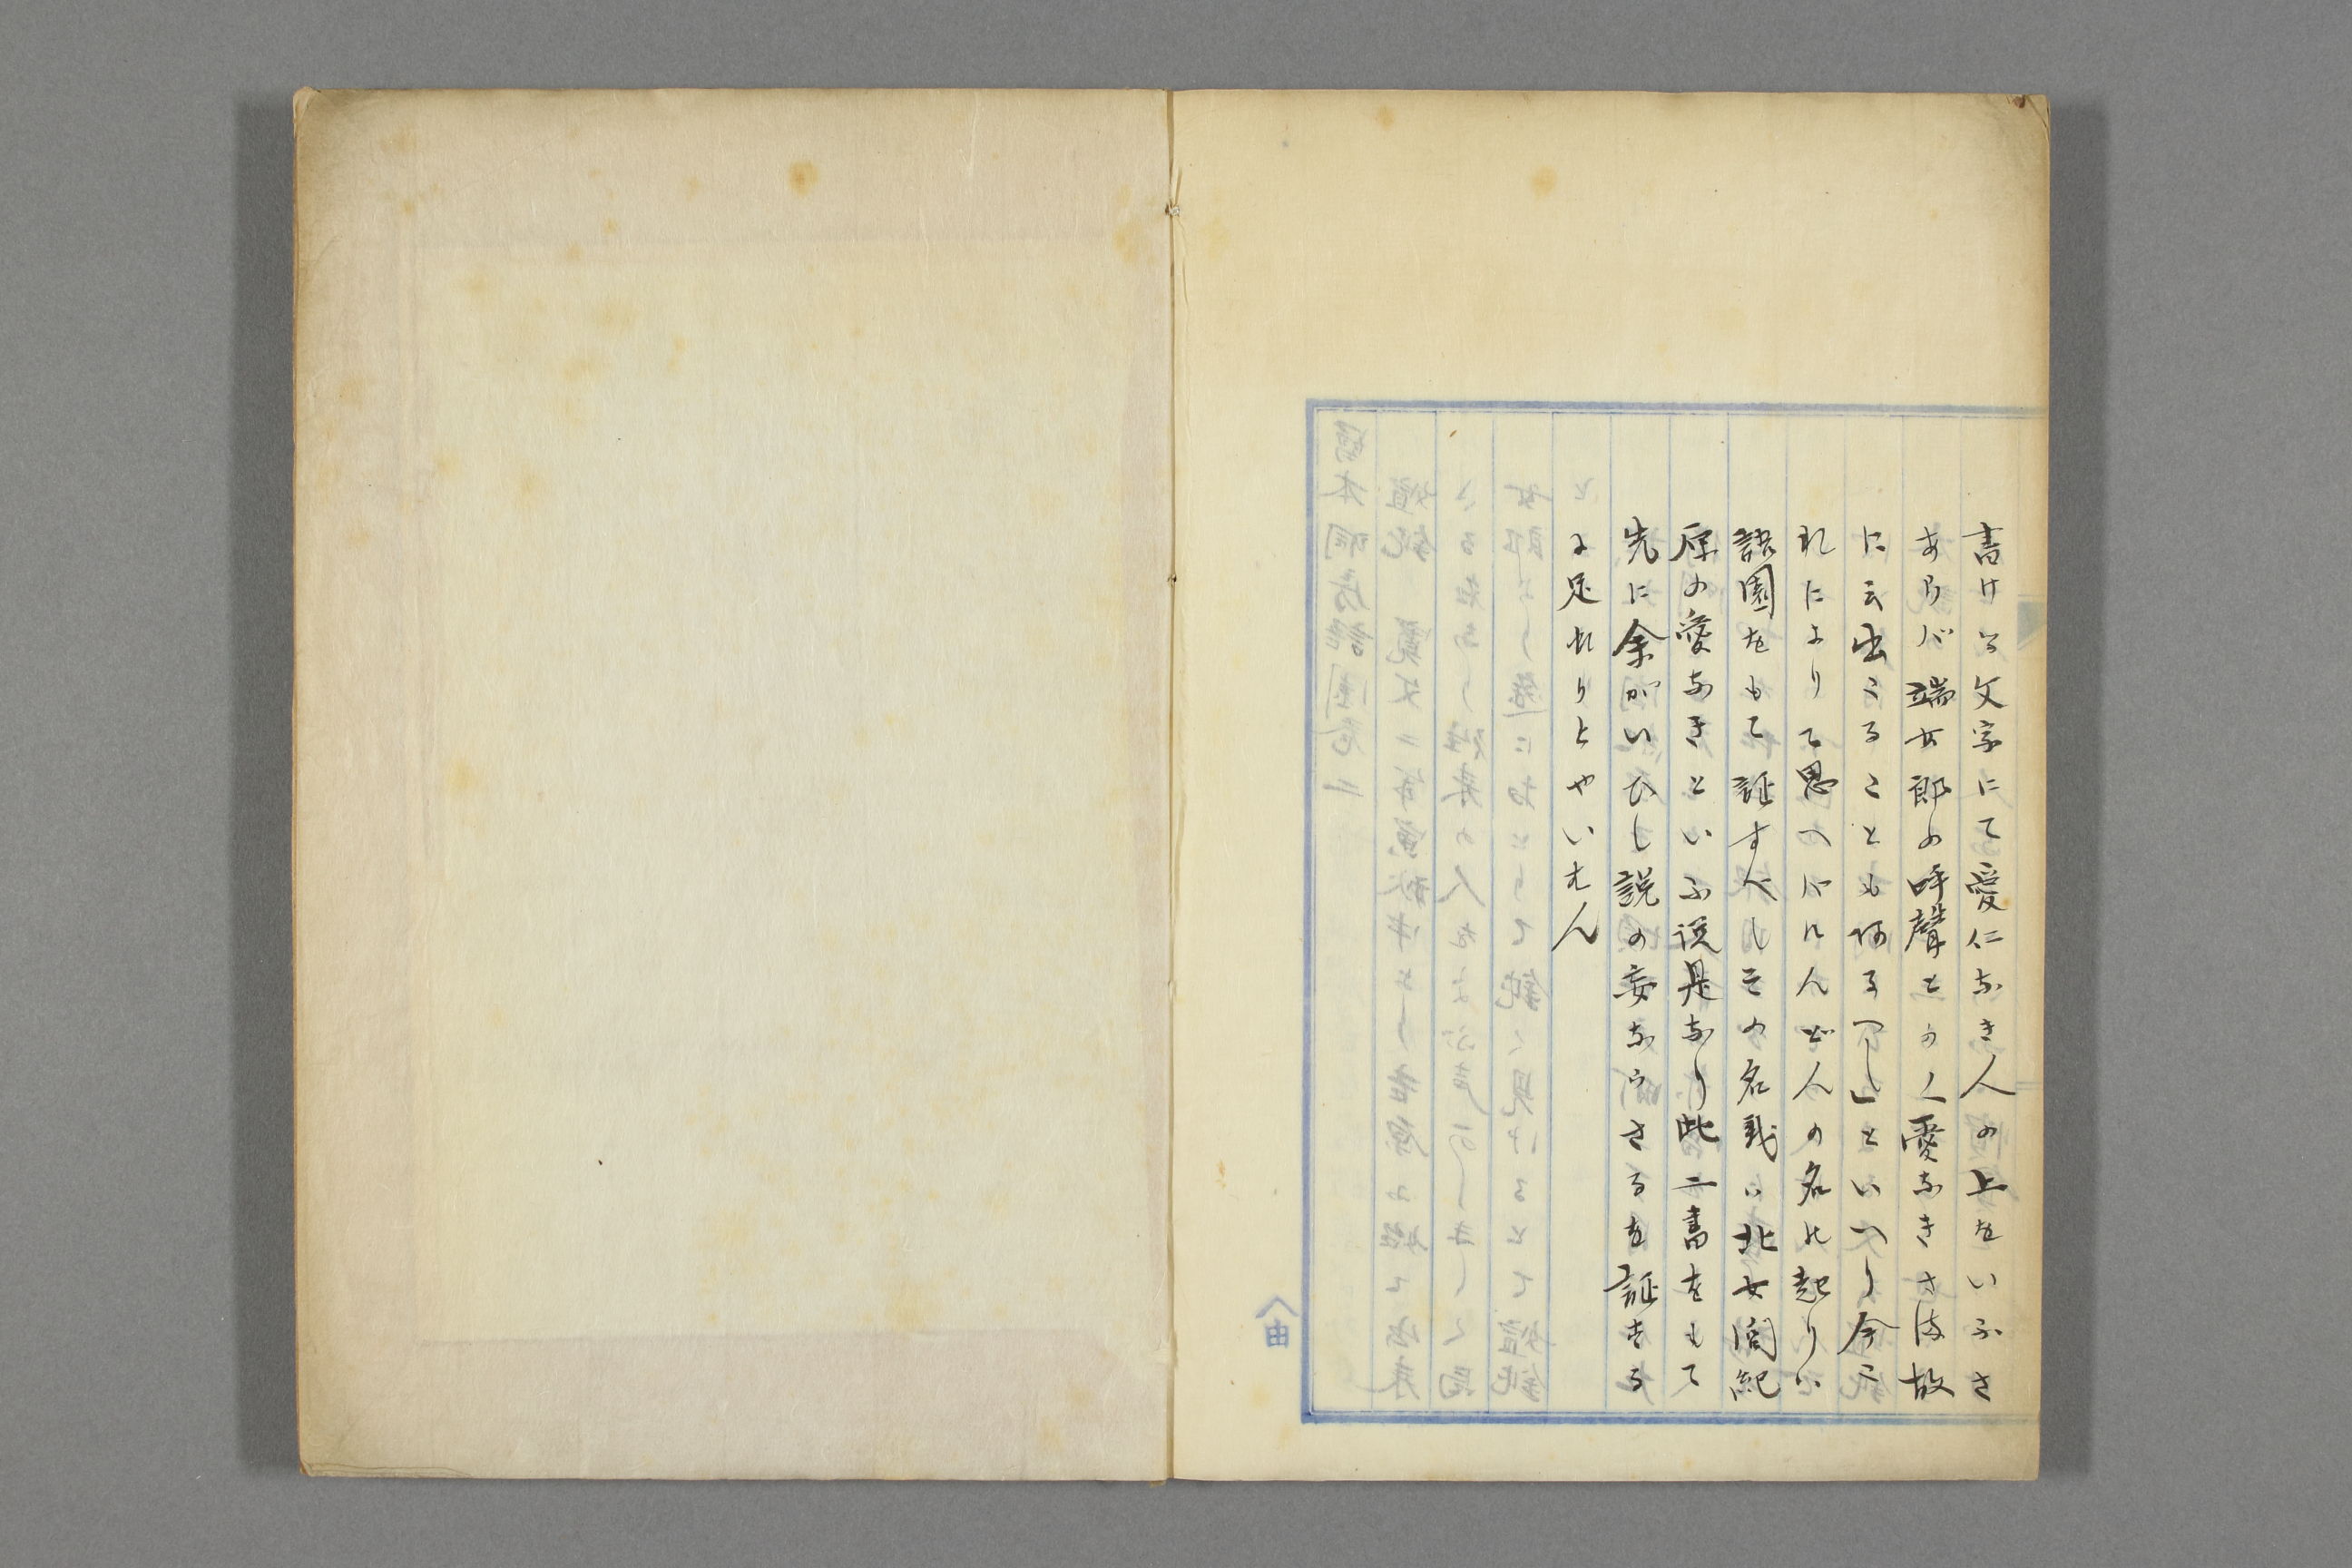 書ける文字にて愛仁なき人の上をいふさ
あらバ端女郎の呼聲とのく愛なきさま故
に云出こることも何るべし」といへり今こ
れによりて思へバけんどん人の名の起りハ
語園をもて証すべしその名義ハ北女閭紀
原の愛なきといふ説是なり此二書をもて
先に余がいひし説の妄ならさるを証する
に足れりとやいはん